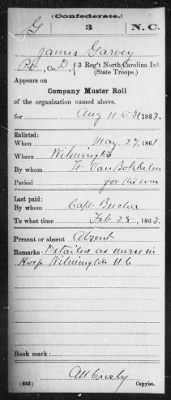 (Confederate.)
G 3 N.C.
James Garvey
Pt., Co. D, 3 Reg't North Carolina Inf.
(State Troops.)
Appears on
Company Muster Roll
of the organization named above,
for Aug 11 to 31, 1862.
Enlisted:
When May 27, 1861
Where Wilmington
By whom Lt Van Bokkelen
Period for the war
Last paid:
By whom Capt
To what time Feb 28, 1862.
Present or absent Absent
Remarks: Detailed as nurse in
Hosp Wilmington N C
Book mark:
(642) Copyist.